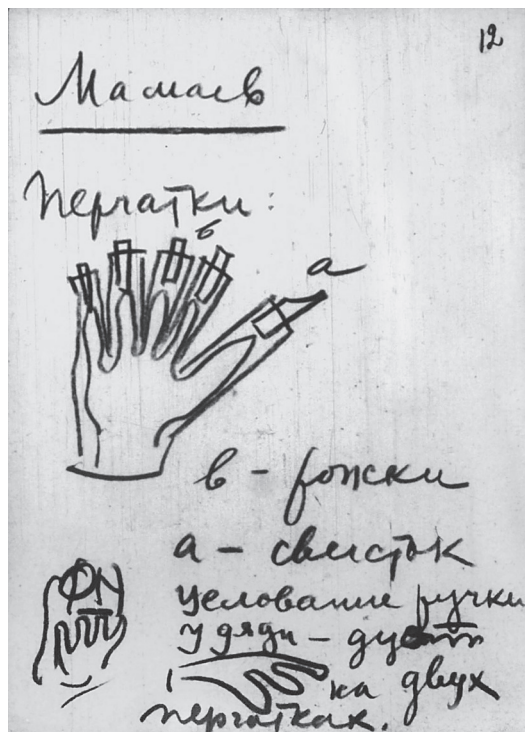 12
Мамаев
Перчатки:
б
а
в - рожки
а - свисток
целование ручки
у дяди - дуэт
на двух
перчатках.